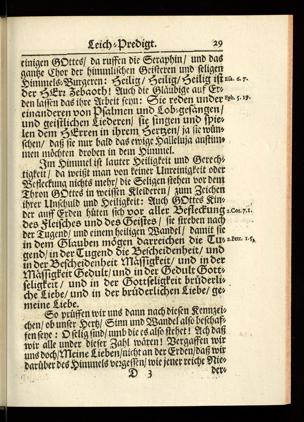 Leich-Predigt. 29
einigen GOttes/ da ruffen die Seraphin/ und das
gantze Chor der himmlischen Geisteren und seligen
Himmels-Burgeren: Heilig/ Heilig/ Heilig ist Esa. 6. 7.
der HErr Zebaoth! Auch die Gläubige auf Er-
den lassen das ihre Arbeit seyn: Sie reden under Eph. 5. 19.
einanderen von Psalmen und Lob-gesangen/
und geistlichen Liederen/ sie singen und spie-
len dem HErren in ihrem Hertzen/ ja sie wün-
schen/ daß sie nur bald das ewige Halleluja anstim-
men möchten droben in dem Himmel.
Im Himmel ist lauter Heiligkeit und Gerech-
tigkeit/ da weißt man von keiner Unreinigkeit oder
Befleckung nichts mehr/ die Seligen stehen vor dem
Thron GOttes in weissen Kleideren/ zum Zeichen
ihrer Unschuld und Heiligkeit: Auch GOttes Kin-
der auff Erden hüten sich vor aller Befleckung 2. Cor. 7. 1.
des Fleisches und des Geistes/ sie streben nach
der Tugend/ und einem heiligen Wandel/ damit sie
in dem Glauben mögen darreichen die Tu- 2. Pet. 1. 5.
gend/ in der Tugend die Bescheidenheit/ und
in der Bescheidenheit Mässigkeit/ und in der
Mässigkeit Gedult/ und in der Gedult Gott-
seligkeit/ und in der Gottseligkeit brüderli-
che Liebe/ und in der brüderlichen Liebe/ ge-
meine Liebe.
So prüffen wir uns dann nach diesen Kennzei-
chen/ ob unser Hertz/ Sinn und Wandel also beschaf-
fen seye: O selig sind/ umb die es also stehet! Ach daß
wir alle under dieser Zahl wären! Vergaffen wir
uns doch/ Meine Lieben/ nicht an der Erden/ daß wir
darüber des Himmels vergessen/ wie jener reiche Nie-
D 3 der-